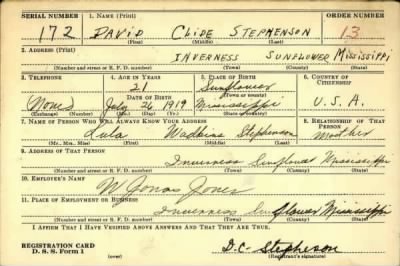 SERIAL NUMBER 1. NAME (Print) ORDER NUMBER
172 DAVID CLIDE STEPHENSON 13
(First) (Middle) (Last)
2. ADDRESS (Print)
INVERNESS SUNFLOWER MISSISSIPPI
(Number and street or R. F. D. number) (Town) (County) (State)
3. TELEPHONE 4. AGE IN YEARS 5. PLACE OF BIRTH 6. COUNTRY OF CITIZENSHIP
21 Sunflower
DATE OF BIRTH (Town or county)
(None) July 26 1919 Mississippi U.S.A.
(Exchange) (Number) (Mo.) (Day) (Yr.) (State or country)
7. NAME OF PERSON WHO WILL ALWAYS KNOW YOUR ADDRESS 8. RELATIONSHIP OF THAT PERSON
Lula Watkins Stephenson Mother
(Mr., Mrs., Miss) (First) (Middle) (Last)
9. ADDRESS OF THAT PERSON
Inverness Sunflower Mississippi
(Number and street or R. F. D. number) (Town) (County) (State)
10. EMPLOYER'S NAME
W Jonas Jones
11. PLACE OF EMPLOYMENT OR BUSINESS
Inverness Sunflower Mississippi
(Number and street or R. F. D. number) (Town) (County) (State)
I AFFIRM THAT I HAVE VERIFIED ABOVE ANSWERS AND THAT THEY ARE TRUE.
REGISTRATION CARD D.C. Stepheson
D. S. S. Form 1 (Registrant's signature)